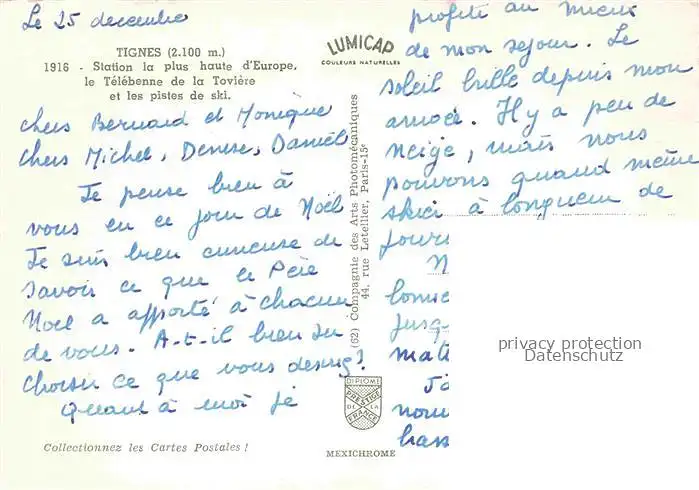 Le 25 decembre
TIGNES (2.100 m.)
1916 - Station la plus haute d'Europe,
le Télébenne de la Tovière
et les pistes de ski.
LUMICAP
COULEURS NATURELLES
chers Bernard et Monique
chers Michel, Denise, Daniel
Je pense bien à
vous en ce jour de Noël
Je suis bien curieuse de
savoir ce que le Père
Noel a apporté à chacun
de vous. A-t-il bien su
choisir ce que vous desirez?
Quant à moi je
(62) Compagnie des Arts Photomécaniques
44, rue Letellier, Paris-15e
profite au mieux
de mon sejour. Le
soleil brille depuis mon
arrivée. Il y a peu de
neige, mais nous
pouvons quand même
skier à longueur de
jour
N
Jusq
mati
nous
DIPLOME
PRESTIGE
DE LA
FRANCE
Collectionnez les Cartes Postales !
MEXICHROME
privacy protection
Datenschutz